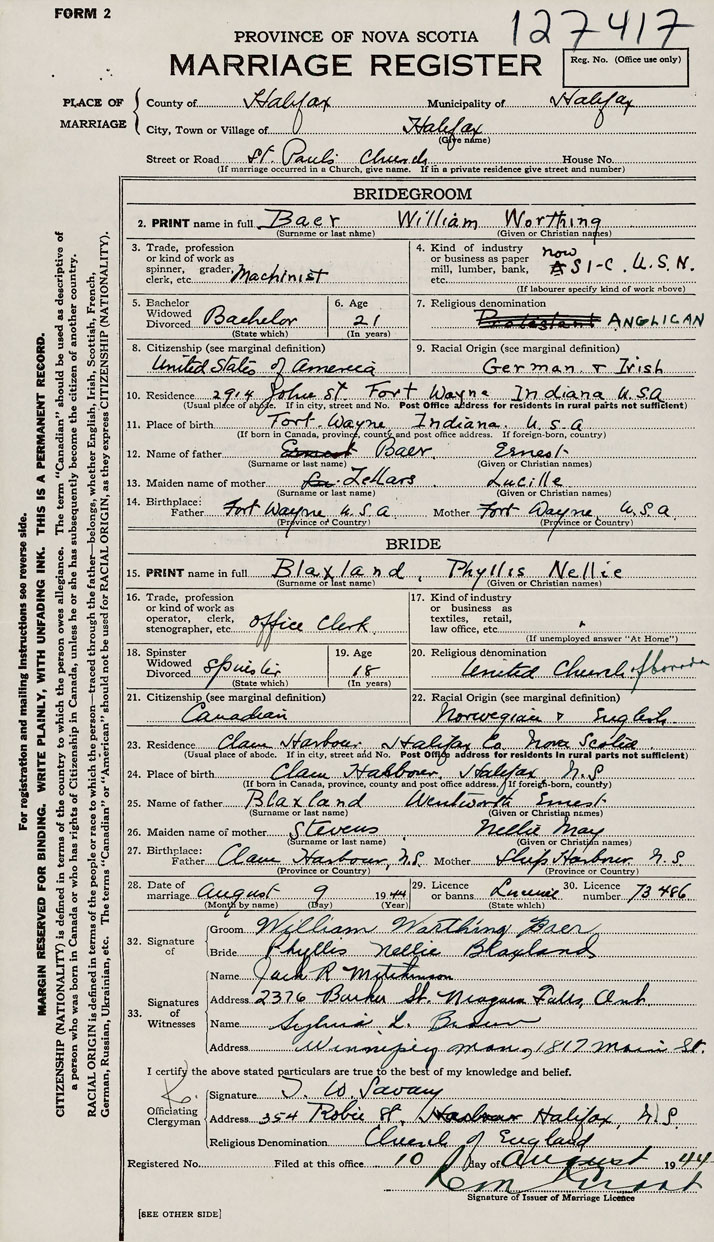 FORM 2
127417
PROVINCE OF NOVA SCOTIA
MARRIAGE REGISTER
Reg. No. (Office use only)
PLACE OF MARRIAGE
County of Halifax Municipality of Halifax
City, Town or Village of Halifax
(Give name)
Street or Road St. Paul's Church House No.
(If marriage occurred in a Church, give name. If in a private residence give street and number)
BRIDEGROOM
2. PRINT name in full Baer William Worthing
(Surname or last name) (Given or Christian names)
3. Trade, profession or kind of work as spinner, grader, clerk, etc. Machinist
4. Kind of industry or business as paper mill, lumber, bank, etc. now S1-C. U.S.N.
(If labourer specify kind of work above)
5. Bachelor Widowed Divorced Bachelor
(State which)
6. Age 21
(In years)
7. Religious denomination Protestant ANGLICAN
8. Citizenship (see marginal definition)
United States of America
9. Racial Origin (see marginal definition)
German & Irish
10. Residence 2914 John St Fort Wayne Indiana U.S.A
(Usual place of abode. If in city, street and No. Post Office address for residents in rural parts not sufficient)
11. Place of birth Fort Wayne Indiana. U.S.A
(If born in Canada, province, county and post office address. If foreign-born, country)
12. Name of father Ernest Baer Ernest
(Surname or last name) (Given or Christian names)
13. Maiden name of mother Zellars Lucille
(Surname or last name) (Given or Christian names)
14. Birthplace: Father Fort Wayne U.S.A Mother Fort Wayne U.S.A
(Province or Country) (Province or Country)
BRIDE
15. PRINT name in full Blaxland, Phyllis Nellie
(Surname or last name) (Given or Christian names)
16. Trade, profession or kind of work as operator, clerk, stenographer, etc. office Clerk
17. Kind of industry or business as textiles, retail, law office, etc.
(If unemployed answer "At Home")
18. Spinster Widowed Divorced Spinster
(State which)
19. Age 18
(In years)
20. Religious denomination
United Church of Canada
21. Citizenship (see marginal definition)
Canadian
22. Racial Origin (see marginal definition)
Norwegian & English
23. Residence Clam Harbour Halifax Co Nova Scotia
(Usual place of abode. If in city, street and No. Post Office address for residents in rural parts not sufficient)
24. Place of birth Clam Harbour, Halifax N.S
(If born in Canada, province, county and post office address. If foreign-born, country)
25. Name of father Blaxland Wentworth Ernest
(Surname or last name) (Given or Christian names)
26. Maiden name of mother Stevens Nellie May
(Surname or last name) (Given or Christian names)
27. Birthplace: Father Clam Harbour, N.S Mother Ship Harbour N.S
(Province or Country) (Province or Country)
28. Date of marriage August 9 1944
(Month by name) (Day) (Year)
29. Licence or banns License
(State which)
30. Licence number 73486
32. Signature of
Groom William Worthing Baer
Bride Phyllis Nellie Blaxland
33. Signatures of Witnesses
Name Jack R Mitchinson
Address 2376 Barker St. Niagara Falls, Ont.
Name Sylvia L. Brown
Address Winnipeg Man, 1817 Main St.
I certify the above stated particulars are true to the best of my knowledge and belief.
Officiating Clergyman
Signature T. W. Savary
Address 354 Robie St. Harbour Halifax, N.S.
Religious Denomination Church of England
Registered No. Filed at this office 10 day of August 1944
Signature of Issuer of Marriage Licence
[SEE OTHER SIDE]
For registration and mailing instructions see reverse side.
MARGIN RESERVED FOR BINDING. WRITE PLAINLY, WITH UNFADING INK. THIS IS A PERMANENT RECORD.
CITIZENSHIP (NATIONALITY) is defined in terms of the country to which the person owes allegiance. The term "Canadian" should be used as descriptive of
a person who was born in Canada or who has rights of Citizenship in Canada, unless he or she has subsequently become the citizen of another country.
RACIAL ORIGIN is defined in terms of the people or race to which the person—traced through the father—belongs, whether English, Irish, Scottish, French,
German, Russian, Ukrainian, etc. The terms "Canadian" or "American" should not be used for RACIAL ORIGIN, as they express CITIZENSHIP (NATIONALITY).